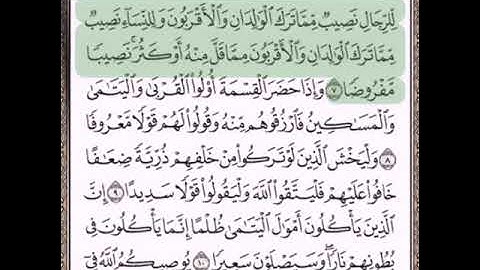 لِّلرِّجَالِ نَصِيبٌ مِّمَّا تَرَكَ ٱلْوَٰلِدَانِ وَٱلْأَقْرَبُونَ وَلِلنِّسَآءِ نَصِيبٌ
مِّمَّا تَرَكَ ٱلْوَٰلِدَانِ وَٱلْأَقْرَبُونَ مِمَّا قَلَّ مِنْهُ أَوْ كَثُرَ ۚ نَصِيبًا
مَّفْرُوضًا ٧ وَإِذَا حَضَرَ ٱلْقِسْمَةَ أُو۟لُوا۟ ٱلْقُرْبَىٰ وَٱلْيَتَٰمَىٰ
وَٱلْمَسَٰكِينُ فَٱرْزُقُوهُم مِّنْهُ وَقُولُوا۟ لَهُمْ قَوْلًا مَّعْرُوفًا
٨ وَلْيَخْشَ ٱلَّذِينَ لَوْ تَرَكُوا۟ مِنْ خَلْفِهِمْ ذُرِّيَّةً ضِعَٰفًا
خَافُوا۟ عَلَيْهِمْ فَلْيَتَّقُوا۟ ٱللَّهَ وَلْيَقُولُوا۟ قَوْلًا سَدِيدًا ٩ إِنَّ
ٱلَّذِينَ يَأْكُلُونَ أَمْوَٰلَ ٱلْيَتَٰمَىٰ ظُلْمًا إِنَّمَا يَأْكُلُونَ فِى
بُطُونِهِمْ نَارًا ۖ وَسَيَصْلَوْنَ سَعِيرًا ١٠ يُوصِيكُمُ ٱللَّهُ فِىٓ